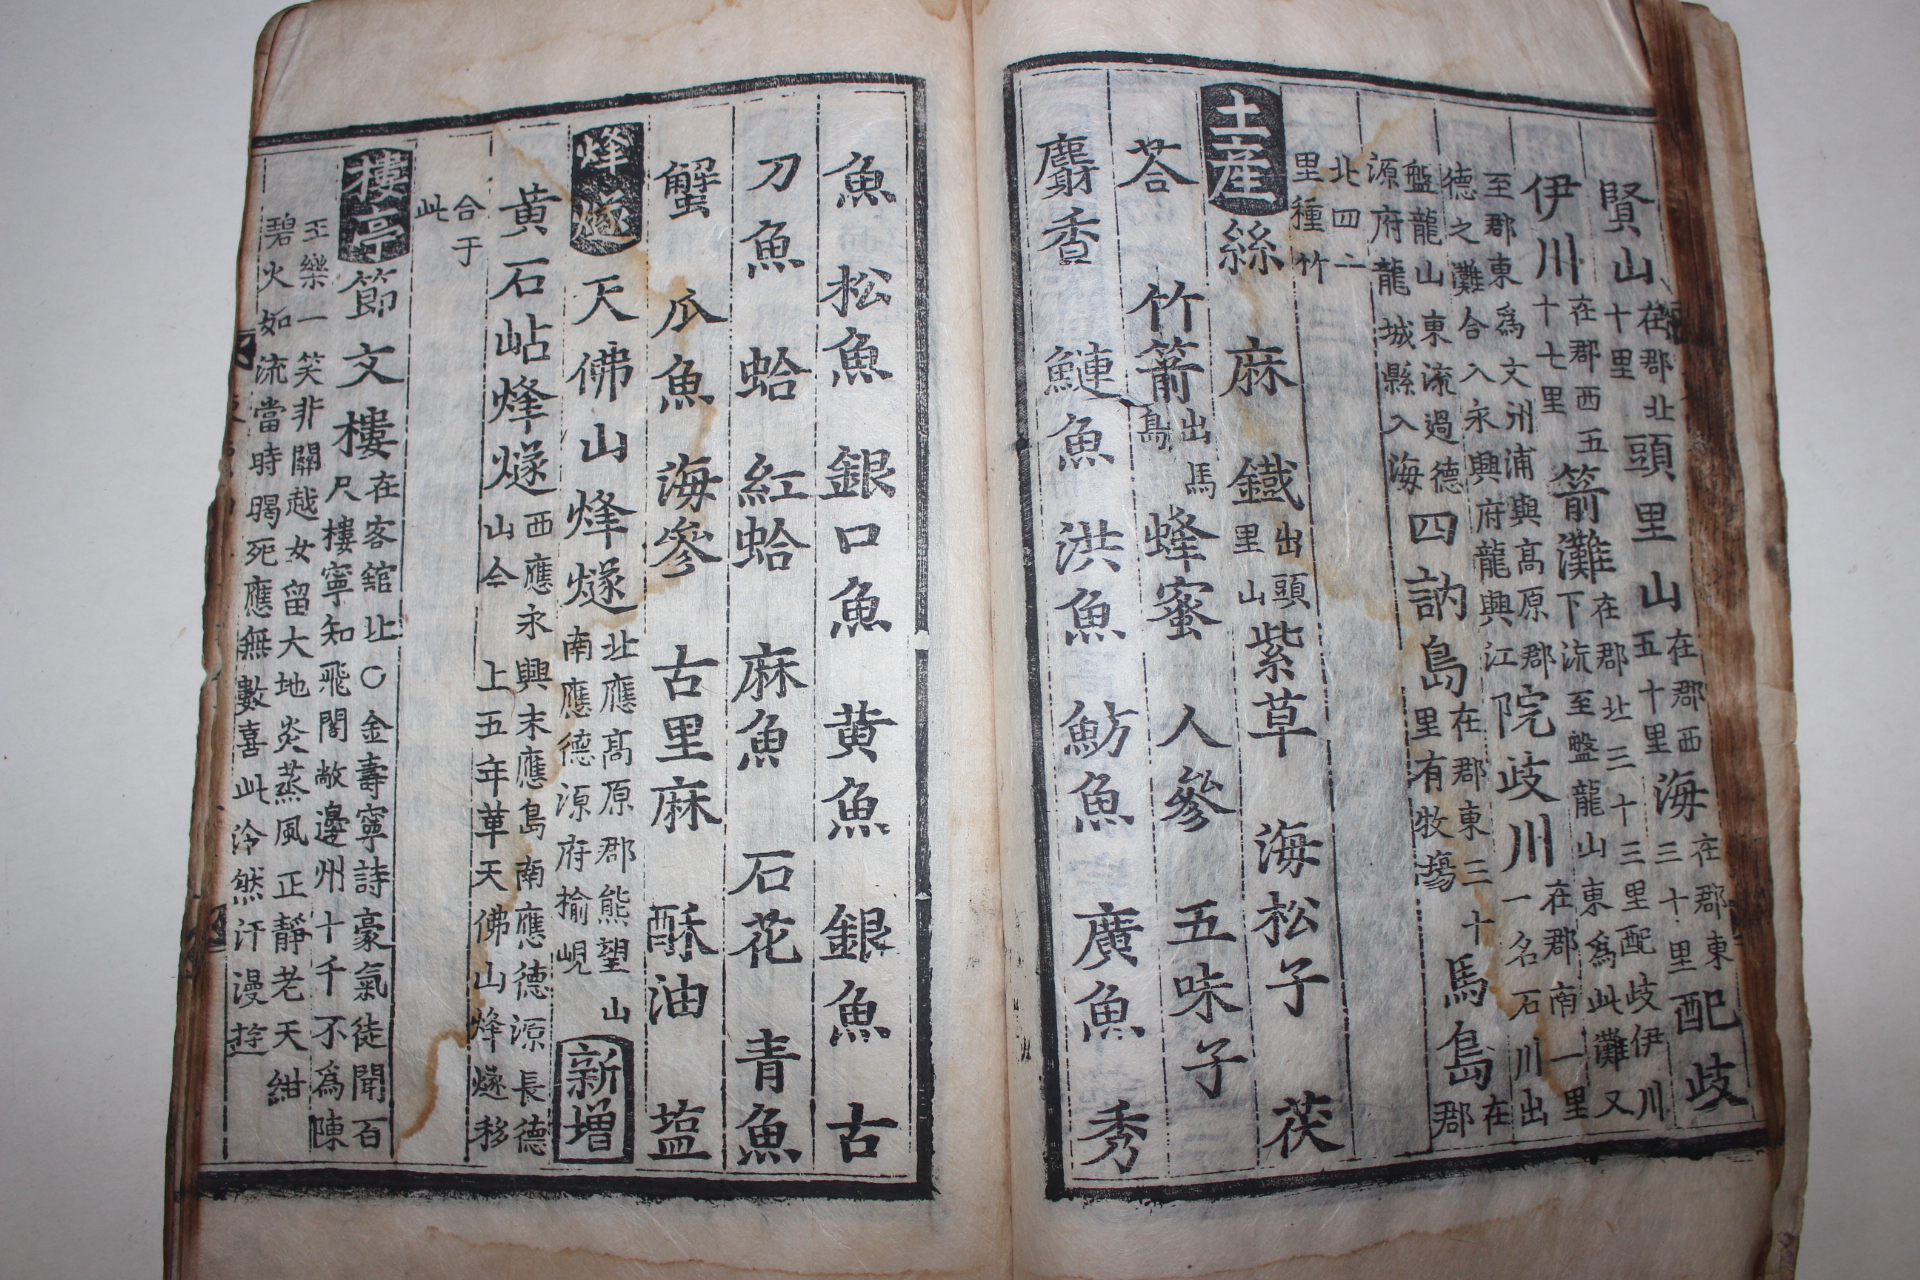 賢山在郡北十里頭里山在郡西五十里海在郡東三十里配岐
伊川在郡西五十七里箭灘在郡北三十三里配岐伊川下流至盤龍山東爲此灘又
至郡東爲文州浦與高原郡德之灘合入永興府龍興江院岐川在郡南一里一名石川出
盤龍山東流過德源府龍城縣入海四訥島在郡東三十里有牧場馬島在郡
北四二里種竹
土産絲 麻 鐵出頭里山紫草 海松子 茯
苓 竹箭出馬島 蜂蜜 人參 五味子
麝香 鰱魚 洪魚 魴魚 廣魚 秀
魚 松魚 銀口魚 黃魚 銀魚 古
刀魚 蛤 紅蛤 麻魚 石花 青魚
蟹 瓜魚 海參 古里麻 酥油 塩
烽燧天佛山烽燧北應高原郡熊望山南應德源府楡峴新增
黃石岾烽燧西應永興末應島南應德源長德山今上五年革天佛山烽燧移
合于此
樓亭節文樓在客館北○金壽寧詩豪氣徒聞百尺樓寧知飛閣敞邊州十千不爲陳
王樂一笑非關越女留大地炎蒸風正靜老天紺
碧火如流當時暍死應無數喜此泠然汗漫遊